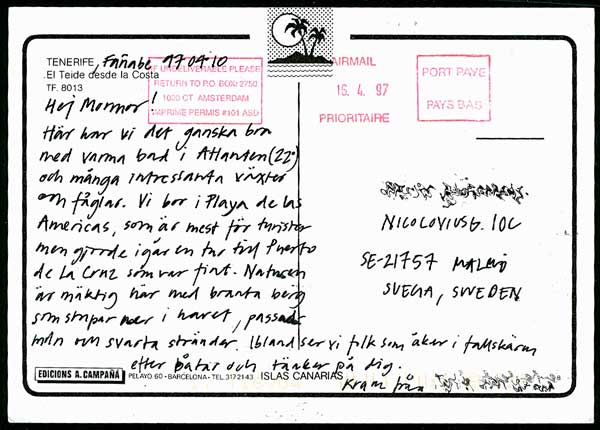 TENERIFE, Fañabe 970410
El Teide desde la Costa
TF. 8013
IF UNDELIVERABLE PLEASE
RETURN TO P.O. BOX 2750
1000 CT AMSTERDAM
IMPRIME PERMIS #101 ASD
AIRMAIL
16. 4. 97
PRIORITAIRE
PORT PAYE
PAYS BAS
Hej Mormor!
Här har vi det ganska bra
med varma bad i Atlanten (22°)
och många intressanta växter
och fåglar. Vi bor i Playa de las
Americas, som är mest för turister
men gjorde igår en tur till Puerto
de La Cruz som var fint. Naturen
är mäktig här med branta berg
som stupar ner i havet, passad-
moln och svarta stränder. Ibland ser vi folk som åker i fallskärm
efter båtar och tänker på dig.
Kram från
NICOLOVIUSG. 10C
SE-21757 MALMÖ
SVEGIA, SWEDEN
EDICIONS A. CAMPAÑA PELAYO 60 - BARCELONA - TEL. 3172143 ISLAS CANARIAS